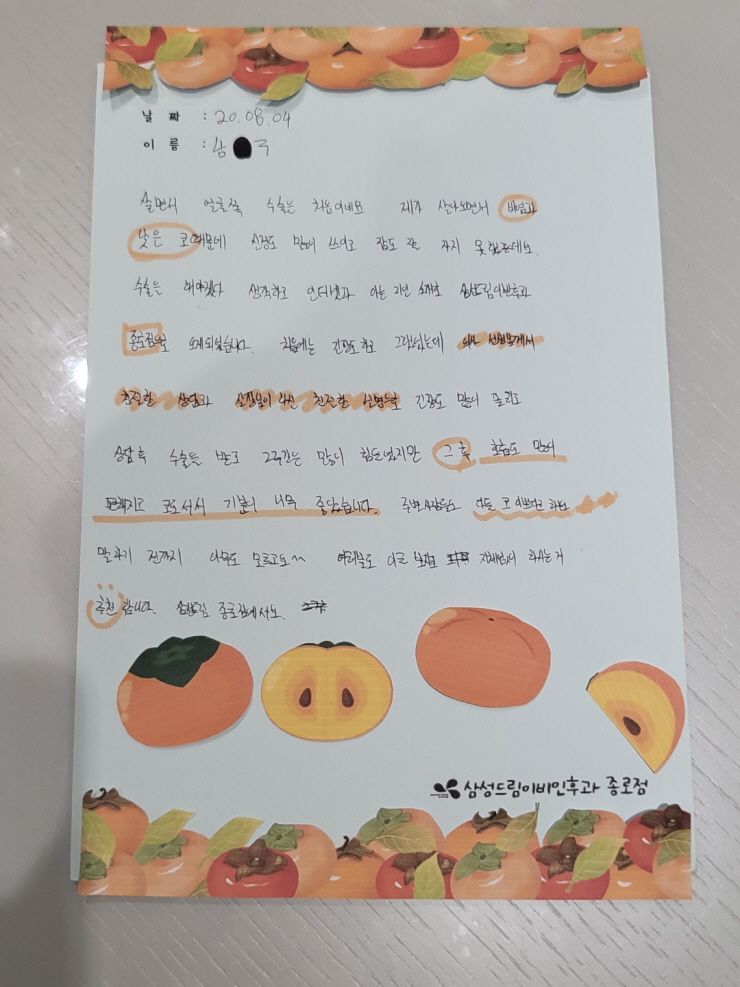 날 짜 : 20.08.04
이 름 : 남 구
살면서 얼굴쪽 수술은 처음이네요 제가 살아오면서 비염과
낮은 코때문에 신경도 많이 쓰이고 잠도 잘 자지 못했는데요.
수술을 해야겠다 생각하고 인터넷과 아는 지인 소개로 삼성드림이비인후과
종로점으로 오게되었습니다. 처음에는 긴장도 하고 그랬었는데 의사 선생님께서
친절한 상담과 실장님의 친절한 설명으로 긴장도 많이 풀리고
상담 후 수술을 받고 2주간은 많이 힘들었지만 그 후 호흡도 많이
편해지고 코도 서서 기분이 너무 좋았습니다. 주변사람들도 다들 코 이쁘다고 하고
말하기 전까지 아무도 모르고요~~ 여러분도 하시는거
추천 합니다. 삼성드림 종로점에서요.
삼성드림이비인후과 종로점